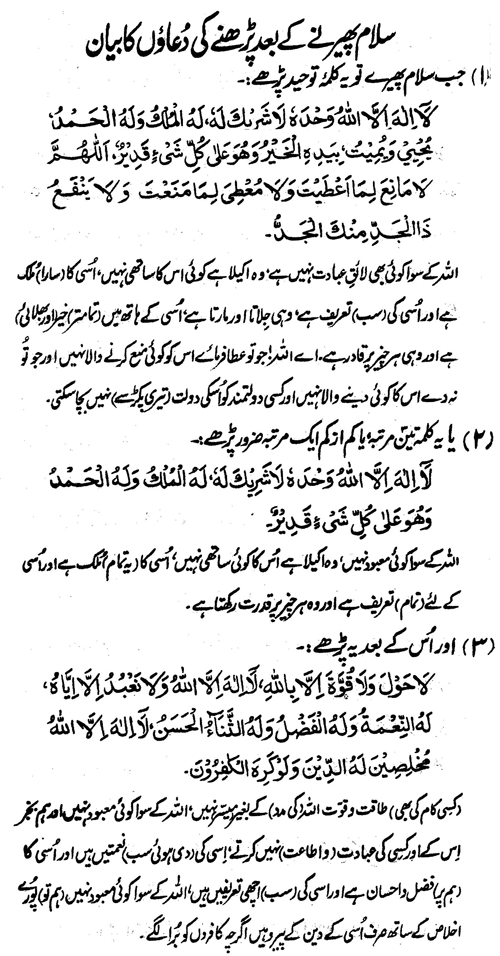 سلام پھیرنے کے بعد پڑھنے کی دُعاؤں کا بیان
(۱) جب سلام پھیرے تو یہ کلمۂ توحید پڑھے:۔
لَا اِلٰهَ اِلَّا اللهُ وَحْدَهٗ لَا شَرِيْكَ لَهٗ، لَهُ الْمُلْكُ وَلَهُ الْحَمْدُ،
يُحْيِيْ وَيُمِيْتُ، بِيَدِهِ الْخَيْرُ وَهُوَ عَلٰى كُلِّ شَىْءٍ قَدِيْرٌ، اَللّٰهُمَّ
لَا مَانِعَ لِمَا اَعْطَيْتَ وَلَا مُعْطِىَ لِمَا مَنَعْتَ وَلَا يَنْفَعُ
ذَا الْجَدِّ مِنْكَ الْجَدُّ۔
اللہ کے سوا کوئی بھی لائقِ عبادت نہیں ہے، وہ اکیلا ہے کوئی اس کا ساتھی نہیں، اُسی کا (سارا) مُلک
ہے اور اُسی کی (سب) تعریف ہے، وہی جلاتا اور مارتا ہے، اُسی کے ہاتھ میں (تمامتر) خیر (اور بھلائی)
ہے اور وہی ہر چیز پر قادر ہے۔ اے اللہ! جو تو عطا فرمائے اس کو کوئی منع کرنے والا نہیں اور جو تُو
نہ دے اس کا کوئی دینے والا نہیں اور کسی دولتمند کو اُسکی دولت (تیری پکڑ سے) نہیں بچا سکتی۔
(۲) یا یہ کلمہ تین مرتبہ، یا کم از کم ایک مرتبہ ضرور پڑھے:۔
لَآ اِلٰهَ اِلَّا اللهُ وَحْدَهٗ لَا شَرِيْكَ لَهٗ، لَهُ الْمُلْكُ وَلَهُ الْحَمْدُ
وَهُوَ عَلٰى كُلِّ شَىْءٍ قَدِيْرٌ۔
اللہ کے سوا کوئی معبود نہیں، وہ اکیلا ہے اُس کا کوئی ساتھی نہیں، اُسی کا (یہ تمام) مُلک ہے اور اُسی
کے لئے (تمام) تعریف ہے اور وہ ہر چیز پر قدرت رکھتا ہے۔
(۳) اور اُس کے بعد یہ پڑھے:۔
لَا حَوْلَ وَلَا قُوَّةَ اِلَّا بِاللهِ، لَآ اِلٰهَ اِلَّا اللهُ وَلَا نَعْبُدُ اِلَّا اِيَّاهُ،
لَهُ النِّعْمَةُ وَلَهُ الْفَضْلُ وَلَهُ الثَّنَآءُ الْحَسَنُ، لَآ اِلٰهَ اِلَّا اللهُ
مُخْلِصِيْنَ لَهُ الدِّيْنَ وَلَوْ كَرِهَ الْكٰفِرُوْنَ۔
(کسی کام کی بھی) طاقت و قوت اللہ (کی مدد) کے بغیر میسّر نہیں، اللہ کے سوا کوئی معبود نہیں اور ہم بجز
اِس کے اور کسی کی عبادت (و اطاعت) نہیں کرتے، اِسی کی (دی ہوئی سب) نعمتیں ہیں اور اُسی کا
(ہم پر) فضل و احسان ہے اور اسی کی (سب) اچھی تعریفیں ہیں، اللہ کے سوا کوئی معبود نہیں (ہم تو) پُورے
اخلاص کے ساتھ صرف اُسی کے دین کے پیرو ہیں اگرچہ کافروں کو بُرا لگے۔